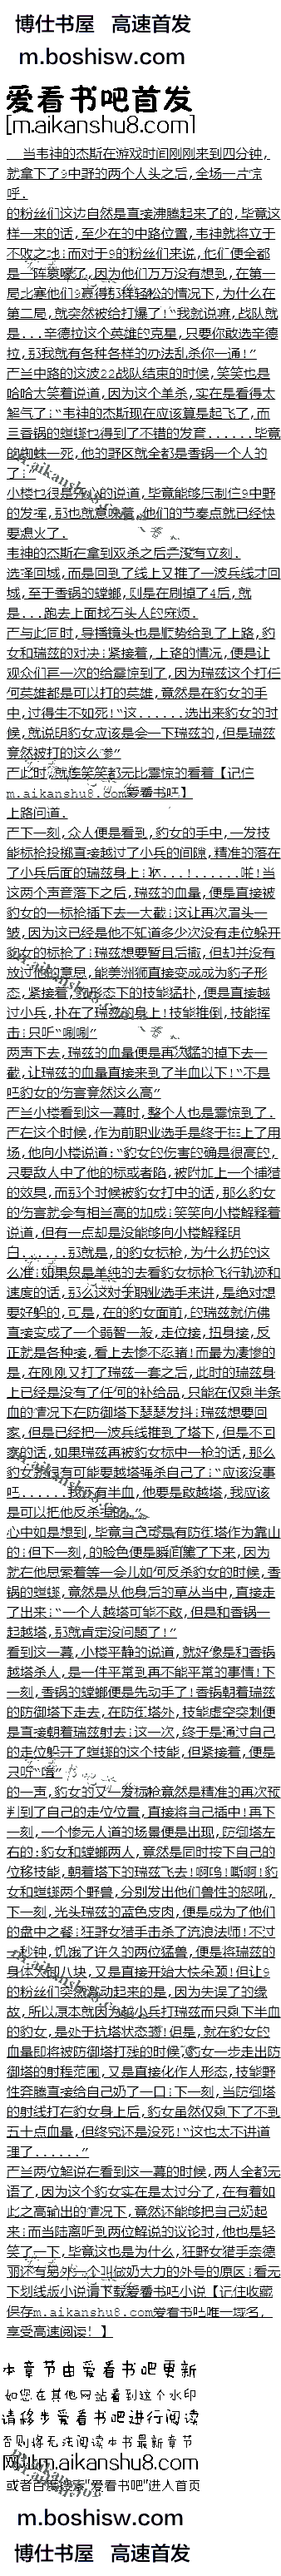 博仕书屋 高速首发
m.boshisw.com
爱看书吧首发
[m.aikanshu8.com]
当韦神的杰斯在游戏时间刚刚来到四分钟,
就拿下了9中野的两个人头之后,全场一片惊
呼.
的粉丝们这边自然是直接沸腾起来了的,毕竟这
样一来的话,至少在的中路位置,韦神就将立于
不败之地;而对于9的粉丝们来说,他们便全都
是一阵哀嚎了,因为他们万万没有想到,在第一
局比赛他们9赢得那样轻松的情况下,为什么在
第二局,就突然被给打爆了!"我就说嘛,战队就
是...辛德拉这个英雄的克星,只要你敢选辛德
拉,那我就有各种各样的办法乱杀你一通!"
产兰中路的这波22战队结束的时候,笑笑也是
哈哈大笑着说道,因为这个单杀,实在是看得太
解气了:"韦神的杰斯现在应该算是起飞了,而
三香锅的螳螂也得到了不错的发育......毕竟
的蜘蛛一死,他的野区就全都是香锅一个人的
了:"
小楼也很是开心的说道,毕竟能够压制住9中野
的发挥,那也就意味着,他们的节奏点就已经快
要熄火了.
韦神的杰斯在拿到双杀之后并没有立刻.
选择回城,而是回到了线上又推了一波兵线才回
城,至于香锅的螳螂,则是在刷掉了4后,就
是...跑去上面找石头人的麻烦.
产与此同时,导播镜头也是顺势给到了上路,豹
女和瑞兹的对决;紧接着,上路的情况,便是让
观众们再一次的给震惊到了,因为瑞兹这个打任
何英雄都是可以打的英雄,竟然是在豹女的手
中,过得生不如死!"这......选出来豹女的时
候,就说明豹女应该是会一下瑞兹的,但是瑞兹
竟然被打的这么惨"
产此时,就连笑笑都无比震惊的看着【记住
m.aikanshu8.com爱看书吧】
上路问道.
产下一刻,众人便是看到,豹女的手中,一发技
能标枪投掷直接越过了小兵的间隙,精准的落在
了小兵后面的瑞兹身上;砍...!......啪!当
这两个声音落下之后,瑞兹的血量,便是直接被
豹女的一标枪插下去一大截;这让再次眉头一
皱,因为这已经是他不知道多少次没有走位躲开
豹女的标枪了;瑞兹想要暂且后撤,但却并没有
放过他的意思,能美洲狮直接变成成为豹子形
态,紧接着,豹形态下的技能猛扑,便是直接越
过小兵,扑在了瑞兹的身上!技能推倒,技能挥
击;只听"唰唰"
两声下去,瑞兹的血量便是再次猛的掉下去一
截,让瑞兹的血量直接来到了半血以下!"不是
吧豹女的伤害竟然这么高"
产兰小楼看到这一幕时,整个人也是震惊到了.
产在这个时候,作为前职业选手是终于排上了用
场,他向小楼说道:"豹女的伤害的确是很高的,
只要敌人中了他的标或者陷,被附加上一个捕猎
的效果,而那个时候被豹女打中的话,那么豹女
的伤害就会有相当高的加成;笑笑向小楼解释着
说道,但有一点却是没能够向小楼解释明
白......那就是,的豹女标枪,为什么扔的这
么准;如果只是单纯的去看豹女标枪飞行轨迹和
速度的话,那么这对于职业选手来讲,是绝对想
要好躲的,可是,在的豹女面前,的瑞兹就仿佛
直接变成了一个弱智一般,走位接,扭身接,反
正就是各种接,看上去惨不忍睹!而最为凄惨的
是,在刚刚又打了瑞兹一套之后,此时的瑞兹身
上已经是没有了任何的补给品,只能在仅剩半条
血的情况下在防御塔下瑟瑟发抖;瑞兹想要回
家,但是已经把一波兵线推到了塔下,但是不回
家的话,如果瑞兹再被豹女标中一枪的话,那么
豹女就是有可能要越塔强杀自己了;"应该没事
吧......我还有半血,他要是敢越塔,我应该
是可以把他反杀掉的..."
心中如是想到,毕竟自己可是有防御塔作为靠山
的;但下一刻,的脸色便是瞬间黑了下来,因为
就在他思索着等一会儿如何反杀豹女的时候,香
锅的螳螂,竟然是从他身后的草丛当中,直接走
了出来;"一个人越塔可能不敢,但是和香锅一
起越塔,那就肯定没问题了!"
看到这一幕,小楼平静的说道,就好像是和香锅
越塔杀人,是一件平常到再不能平常的事情!下
一刻,香锅的螳螂便是先动手了!香锅朝着瑞兹
的防御塔下走去,在防御塔外,技能虚空突刺便
是直接朝着瑞兹射去;这一次,终于是通过自己
的走位躲开了螳螂的这个技能,但紧接着,便是
只听"嗖"
的一声,豹女的又一发标枪竟然是精准的再次预
判到了自己的走位位置,直接将自己插中!再下
一刻,一个惨无人道的场景便是出现,防御塔左
右的:豹女和螳螂两人,竟然是同时按下自己的
位移技能,朝着塔下的瑞兹飞去!啊呜!嘶啊!豹
女和螳螂两个野兽,分别发出他们兽性的怒吼,
下一刻,光头瑞兹的蓝色皮肉,便是成为了他们
的盘中之餐;狂野女猎手击杀了流浪法师!不过
一秒钟,饥饿了许久的两位猛兽,便是将瑞兹的
身体大卸八块,又是直接开始大快朵颐!但让9
的粉丝们突然激动起来的是,因为失误了的缘
故,所以原本就因为越小兵打瑞兹而只剩下半血
的豹女,是处于抗塔状态的!但是,就在豹女的
血量即将被防御塔打残的时候,豹女一步走出防
御塔的射程范围,又是直接化作人形态,技能野
性奔腾直接给自己奶了一口;下一刻,当防御塔
的射线打在豹女身上后,豹女虽然仅剩下了不到
五十点血量,但终究还是没死!"这也太不讲道
理了......"
产兰两位解说在看到这一幕的时候,两人全都无
语了,因为这个豹女实在是太过分了,在有着如
此之高输出的情况下,竟然还能够把自己奶起
来;而当陆离听到两位解说的议论时,他也是轻
笑了一下,毕竟这也是为什么,狂野女猎手奈德
丽还有另外一个叫做奶大力的外号的原因;看无
下划线版小说请下载爱看书吧小说【记住收藏
保存m.aikanshu8.com爱看书吧唯一域名,
享受高速阅读!】
本章节由爱看书吧更新
如您在其他网站看到这个水印
请移步爱看书吧进行阅读
否则将无法阅读本书最新章节
网址m.aikanshu8.com
或者百度搜索"爱看书吧"进入首页
m.boshisw.com
博仕书屋 高速首发